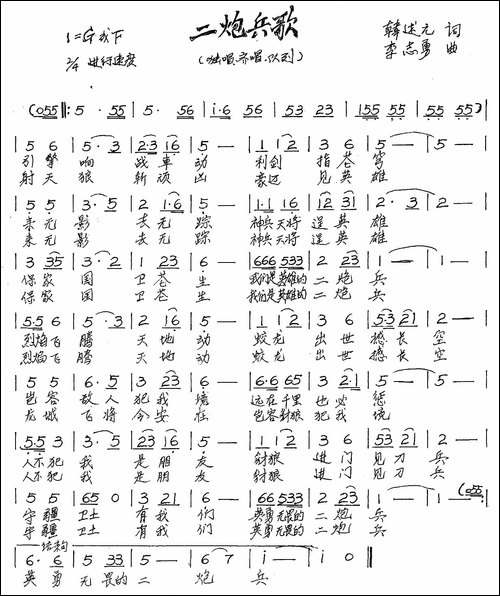 二炮兵歌
1=G或F
2/4 进行速度
(独唱、齐唱、队列)
韩述元 词
李志勇 曲
(055 ‖: 5 · 55 | 5 · 56 | i·6 56 | 53 23 | 155 55 | 55 55 )|
| 5 6 | 5 · 3 | 2·3 16 | 5 — | 1 12 | 3 6 | 5 — | 5 — |
引擎 响 战车 动 利剑 指苍 穹
射天 狼 斩顽 凶 豪迈 见英 雄
| 5 5 | 3 · 5 | 2 1·6 | 5 — | 1·1 16 | 12 31 | 2 · 3 | 2 — |
来无 影 去无 踪 神兵天将 逞英 雄
来无 影 去无 踪 神兵天将 逞英 雄
| 3 35 | 3 · 2 | 1 23 | 6 — | 666 533 | 2 23 | 1 — | 1 — |
保家 国 卫苍 生 我们是英雄的 二炮 兵
保家 国 卫苍 生 我们是英雄的 二炮 兵
| 5·5 6 | 5 · 3 | 2 16 | 5 — | 1 12 | 3 6 | 53 21 | 2 — |
烈焰飞 腾 天地 动 蛟龙 出世 撼长 空
烈焰飞 腾 天地 动 蛟龙 出世 撼长 空
| 5 5 | 6 · 5 | 3 23 | 6 — | 6·6 65 | 3 2·1 | 5 — | 5 — |
岂容 敌人 犯我 境 远在千里 也必 惩
龙城 飞将 今安 在 岂容豺狼 犯我 境
| 5·5 3 | 3 · 5 | 23 16 | 5 — | 1 12 | 3 6 | 53 21 | 2 — |
人不犯 我 是朋 友 豺狼 进门 见刀 兵
人不犯 我 是朋 友 豺狼 进门 见刀 兵
| 5 5 | 65 0 | 3 21 | 6 — | 66 533 | 2 23 | 1 — | 1 — (055 :‖
守疆 卫土 有我 们 英勇无畏的 二炮 兵
守疆 卫土 有我 们 英勇无畏的 二炮 兵
结构
| 6 · 6 | 5 33 | 5 — | 6 7 | i — | i 0 ‖
英 勇 无 畏的 二 炮 兵